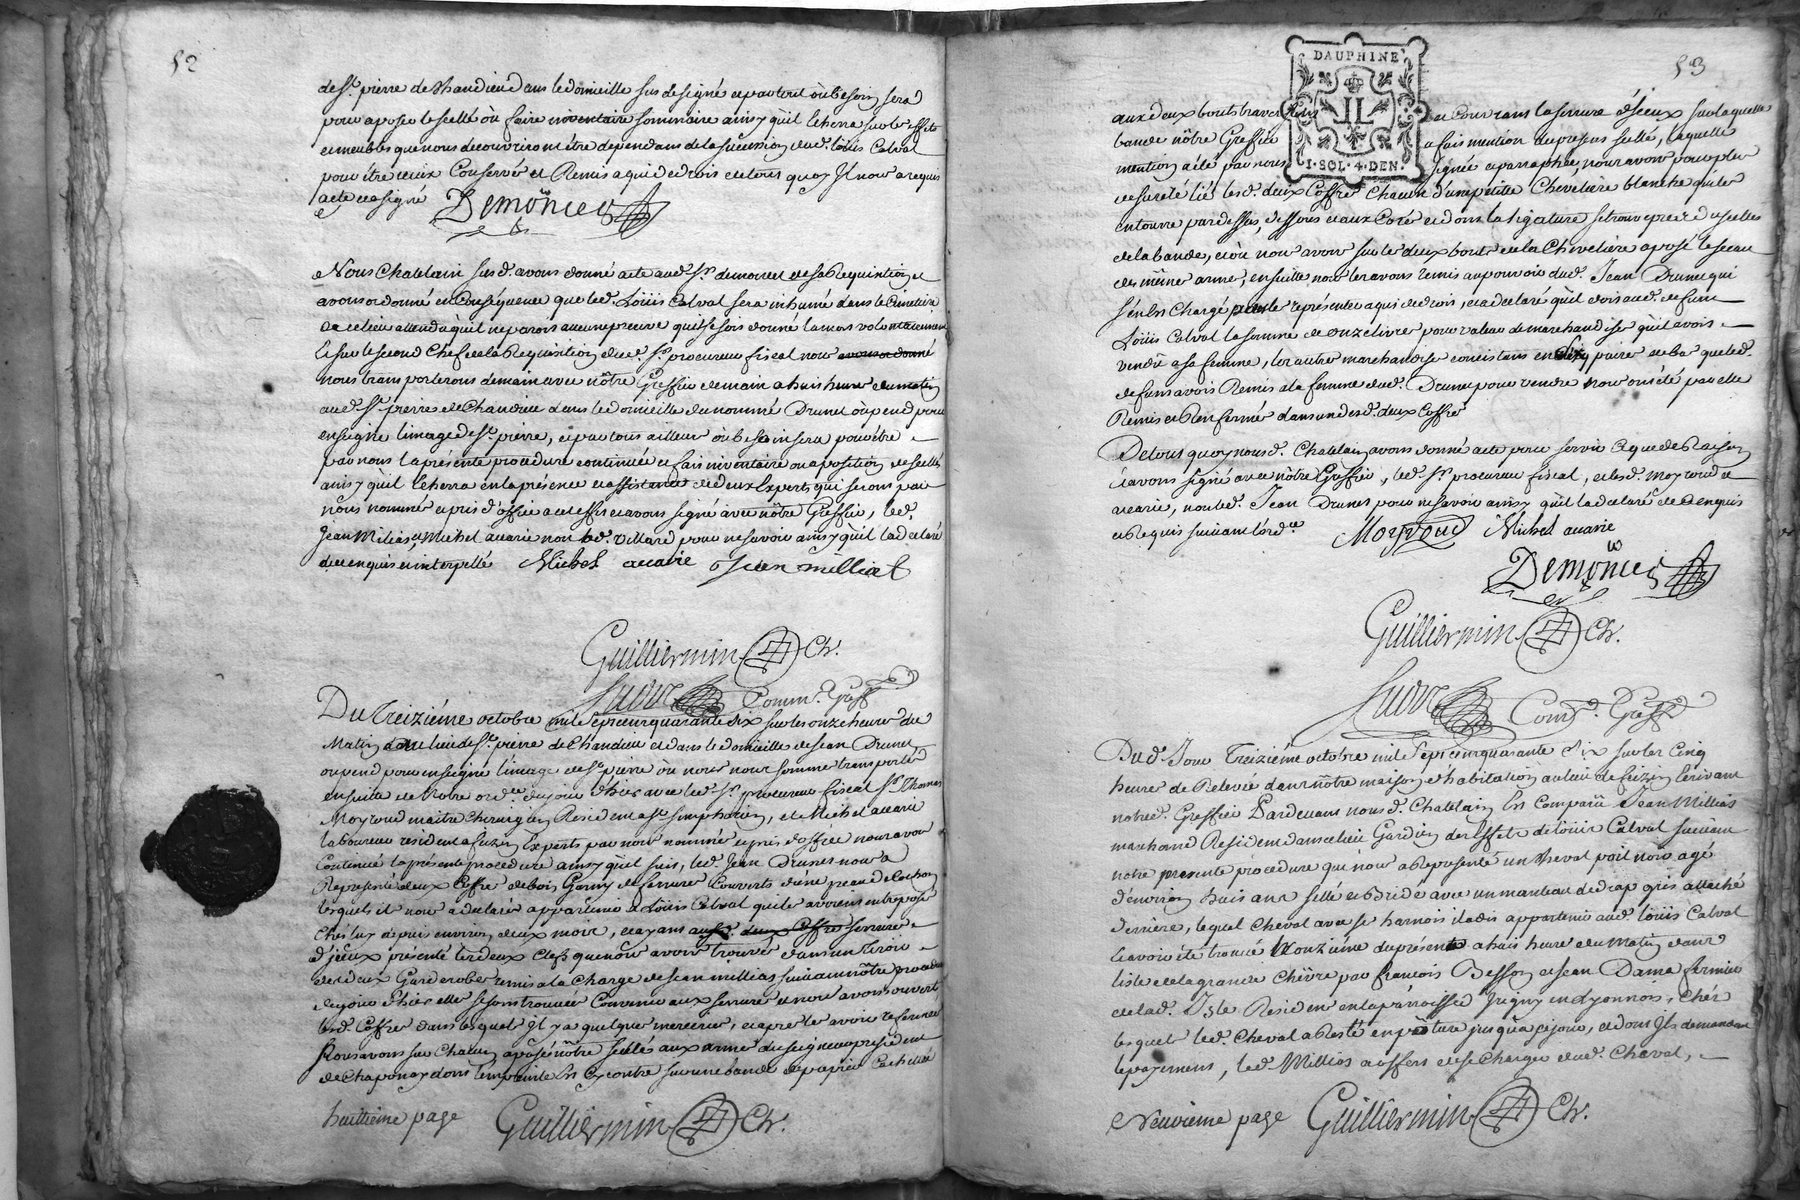 52
de St. pierre de Chandieu dans le domicille sus designé et partout où besoin sera
pour aposer le scellé où faire inventaire sommaire ainsy qu'il écherra sur les effets
et meubles que nous decouvrirons être dépendans de la succession dud. Loüis Calval
pour être iceux Conservés et Remis a qui de droit et de tout quoy Il nous a requis
acte et a signé Demonces
Nous Chatelain susd. avons donné acte aud. Sr. demonces de sa Requisition, et
avons ordonné en Conséquence que led. Loüis Calval sera inhumé dans le Cimetiere
de ce lieu attendu qu'il ne parois aucune preuve qu'il se soit donné la mort volontairement
Et sur le second Chef de la Requisition dud. Sr. procureur fiscal nous avons ordonné
nous transporterons demain avec nôtre Greffier demain a huit heures du matin
aud. St. pierre de Chandieu dans le domicille du nommé Drunet où pend pour
enseigne l'image de St. pierre, et partout ailleurs où besoin sera pour être
par nous la présente procédure continuée et fait inventaire ou aposition de scellés
ainsy qu'il écherra en la présence et assistance de deux Experts qui seront par
nous nommés et pris d'office et avons signé avec nôtre Greffier, led.
Jean Milias, Michel auarie non led. Villard pour ne savoir ainsy qu'il l'a declaré
de ce enquis et interpellé Michel auarie Jean milliat
Guilliermin Ch.
Comm. Greff.
Du treizième octobre mil sept cent quarante six sur les onze heures du
Matin, dans le lieu de St. pierre de Chandieu et dans le domicille de Jean Drunet
ou pend pour enseigne l'image de St. pierre où nous nous sommes transportés
ensuite de Notre ordce. du jour d'hier avec led. Sr. procureur fiscal Sr. Thomas
Moyroud maitre Chirurgien Resident a St. simphorien, et Michel auarie
laboureur resident a Feizin Experts par nous nommés et pris d'office nous avons
Continué la présente procedure ainsy qu'il suit, led. Jean Drunet nous a
Representé deux Coffres de bois Garny de serrures Couverts d'une peau de Cochon
lesquels il nous a declaré appartenir a Loüis Calval qu'il avoient entreposé
Chés luy depuis environ deux mois, et ayans aux d. deux Coffres serrures
d'jceux présenté les deux Clefs que nous avons trouvé dans un tiroir
des deux Garderobes remis a la Charge de Jean millias suivant nôtre procedure
du jour d'hier elles se sont trouvées Convenir aux serrures et nous avons ouvert
lesd. Coffres dans lesquels Jl y a quelques merceries, et apres les avoir refermés
Nous avons sur Chacun aposé nôtre scellés aux armes du seigneur president
de Chaponay dont l'empreinte Est cy contre sur une bande de papier Cachetté
huittième page Guilliermin Ch.
53
DAUPHINE
1 · SOL · 4 · DEN.
aux deux bouts traversant et Couvrant la serrure d'jceux sur laquelle
bande nôtre Greffier a fait mention du present scellé, laquelle
mention a été par nous signée et parraphée, nous avons pour plus
de sureté lié lesd. deux Coffres Chacun d'une petite Cheveliere blanche qui les
entoure par dessus, dessous et aux Cotés et dont la ligature se trouve près d'jcelles
de la bande, et où nous avons sur les deux bouts de la Cheveliere aposé le sceau
des mêmes armes, ensuitte nous les avons remis au pouvoir dud. Jean Drunet qui
s'en Est Chargé pour les représenter a qui de droit, et a declaré qu'il doit aud. defunt
Loüis Calval la somme de onze livres pour valeur de marchandises qu'il avoit
vendu a sa femme, les autres marchandises consistans en dix paires de bas que led.
defunt avoit Remis a la femme dud. Drunet pour vendre Nous ont été par elle
Remis et Renfermés dans un desd. deux Coffres
De tout quoy nousd. Chatelain avons donné acte pour servir ce que de Raison
et avons signé avec nôtre Greffier, led. Sr. procureur fiscal, et lesd. Moyroud et
auarie, non led. Jean Drunet pour ne savoir ainsy qu'il l'a declaré de ce Enquis
et Requis suivant l'ordce. Moyroud Michel auarie
Demonces
Guilliermin Ch.
Comm. Greff.
Dud. Jour Treizième octobre mil sept cent quarante Six sur les Cinq
heures de Relevée dans nôtre maison d'habitation au lieu de feizin, Ecrivant
notred. Greffier Pardevant nousd. Chatelain Est Comparû Jean Millias
marchand Resident dans ce lieu Gardien des Effets de Loüis Calval suivant
notre presente procedure qui nous a Representé un Cheval poil noir agé
d'environ huit ans sellé et Bridé avec un manteau de drap gris attaché
derriere, lequel Cheval avec ses harnois il a dit appartenir aud. Loüis Calval
et avoir été trouvé L'onzième du présent a huit heures du Matin, dans
l'isle de la grande Chèvre par françois Besson, et Jean Dama fermiers
de lad. Isle Residens en la parroisse d'Jrigny en Lyonnois, Chés
lesquels led. Cheval a Resté en pâture jusqu'a ce jour, et dont Jls demandent
le payement, led. Millias a offert de se Charger dud. Cheval,
Neuvième page Guilliermin Ch.